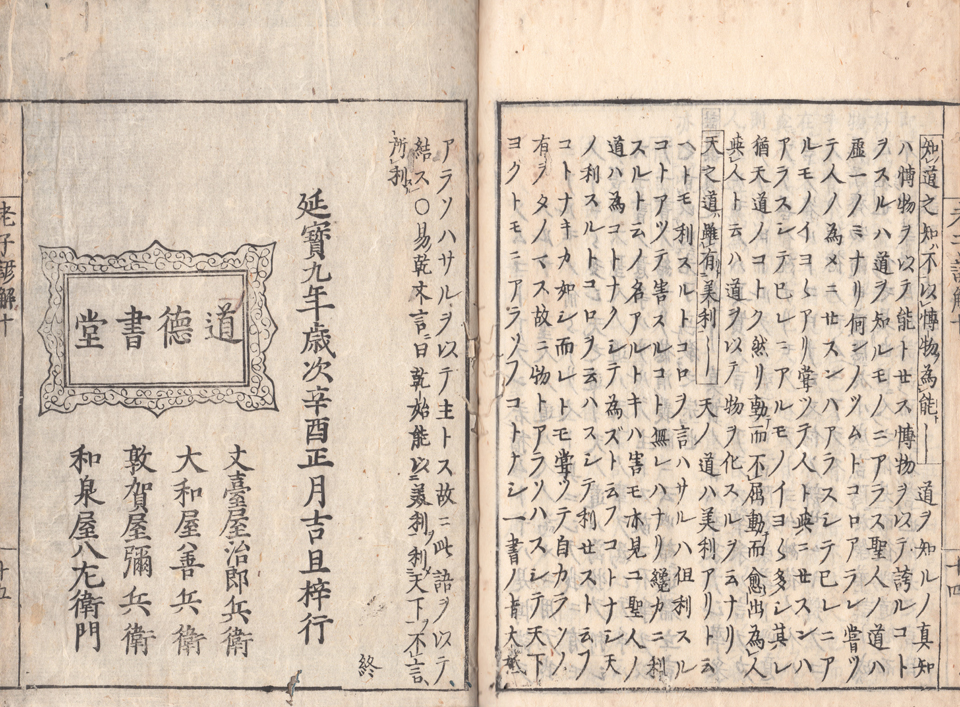 知道之知、不以博物為能、──　道ヲ知ルノ真知
ハ博物ヲ以テ能ト廿ス博物ヲ以テ誇ルコト
ヲスルハ道ヲ知ルモノニアラス聖人ノ道ハ
虚一ノミナリ何ンノツムトコロアラン嘗ツ
テ人ノ為メニ廿スンハアラスシテ已レニア
ルモノイヨ〳〵アリ嘗ツテ人ト與ニ廿スンハ
アラスシテ已レニアルモノイヨ〳〵多シ其レ
猶天道ノコトク然リ動而不屈動而愈出為人
與人ト云ハ道ヲ以テ物ヲ化スルヲ云ナリ
天之道雖有美利──　天ノ道ハ美利アリト云
ヘトモ利スルトコロヲ言ハサルハ但利スル
コトアツテ害スルコト無レハナリ纔カニ利
スルト云ノ名アルトキハ害モ亦見ユ聖人ノ
道ハ為コトナクシテ為ズト云フコトナシ天
ノ利スルトコロヲ云ハスシテ利セスト云フ
コトナキカ如シ而レトモ嘗ツテ自カラソノ
有ヲタノマス故ニ物トアラソハスシテ天下
ヨクトモニアラソフコトナシ一書ノ旨大
アラソハサルヲ以テ主トス故ニ此語ヲ以テ
結ス○易乾文言ニ曰乾始能以美利利天下不言
所利
終
延寶九年歳次辛酉正月吉旦梓行
道德書堂
丈臺屋治郎兵衛
大和屋善兵衛
敦賀屋彌兵衛
和泉屋八左衛門
老子諺解十
十五
十四